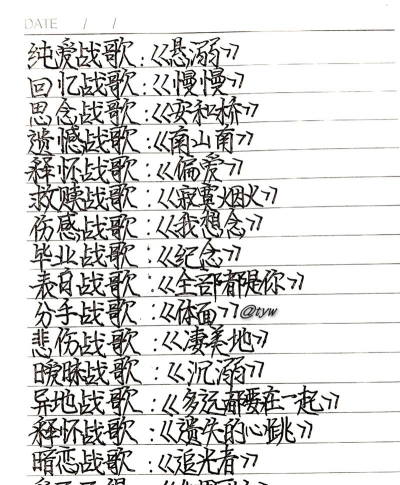 DATE / /
纯爱战歌:《悬溺》
回忆战歌:《慢慢》
思念战歌:《安和桥》
遗憾战歌:《南山南》
释怀战歌:《偏爱》
救赎战歌:《寂寞烟火》
伤感战歌:《我想念》
毕业战歌:《纪念》
表白战歌:《全部都是你》
分手战歌:《体面》@tyw
悲伤战歌:《凄美地》
暧昧战歌:《沉溺》
异地战歌:《多远都要在一起》
释怀战歌:《遗失的心跳》
暗恋战歌:《追光者》